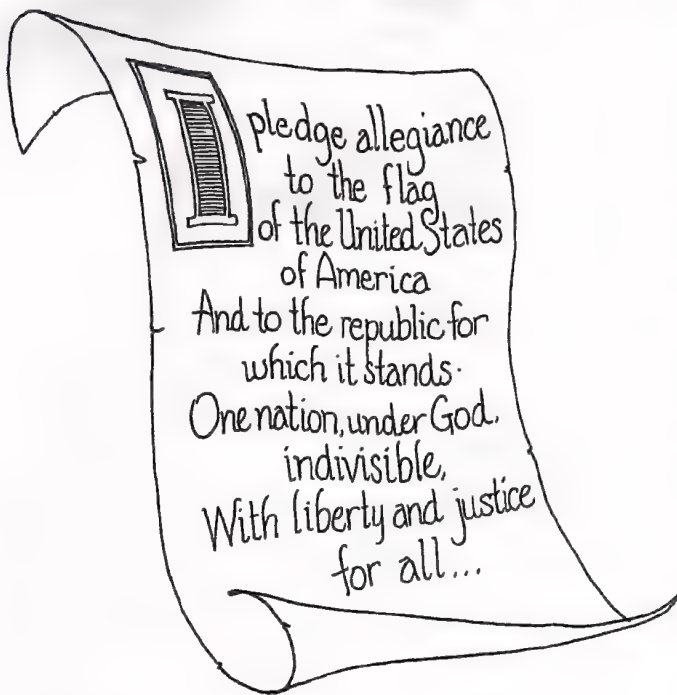 I pledge allegiance
to the flag
of the United States
of America
And to the republic for
which it stands.
One nation, under God,
indivisible,
With liberty and justice
for all...